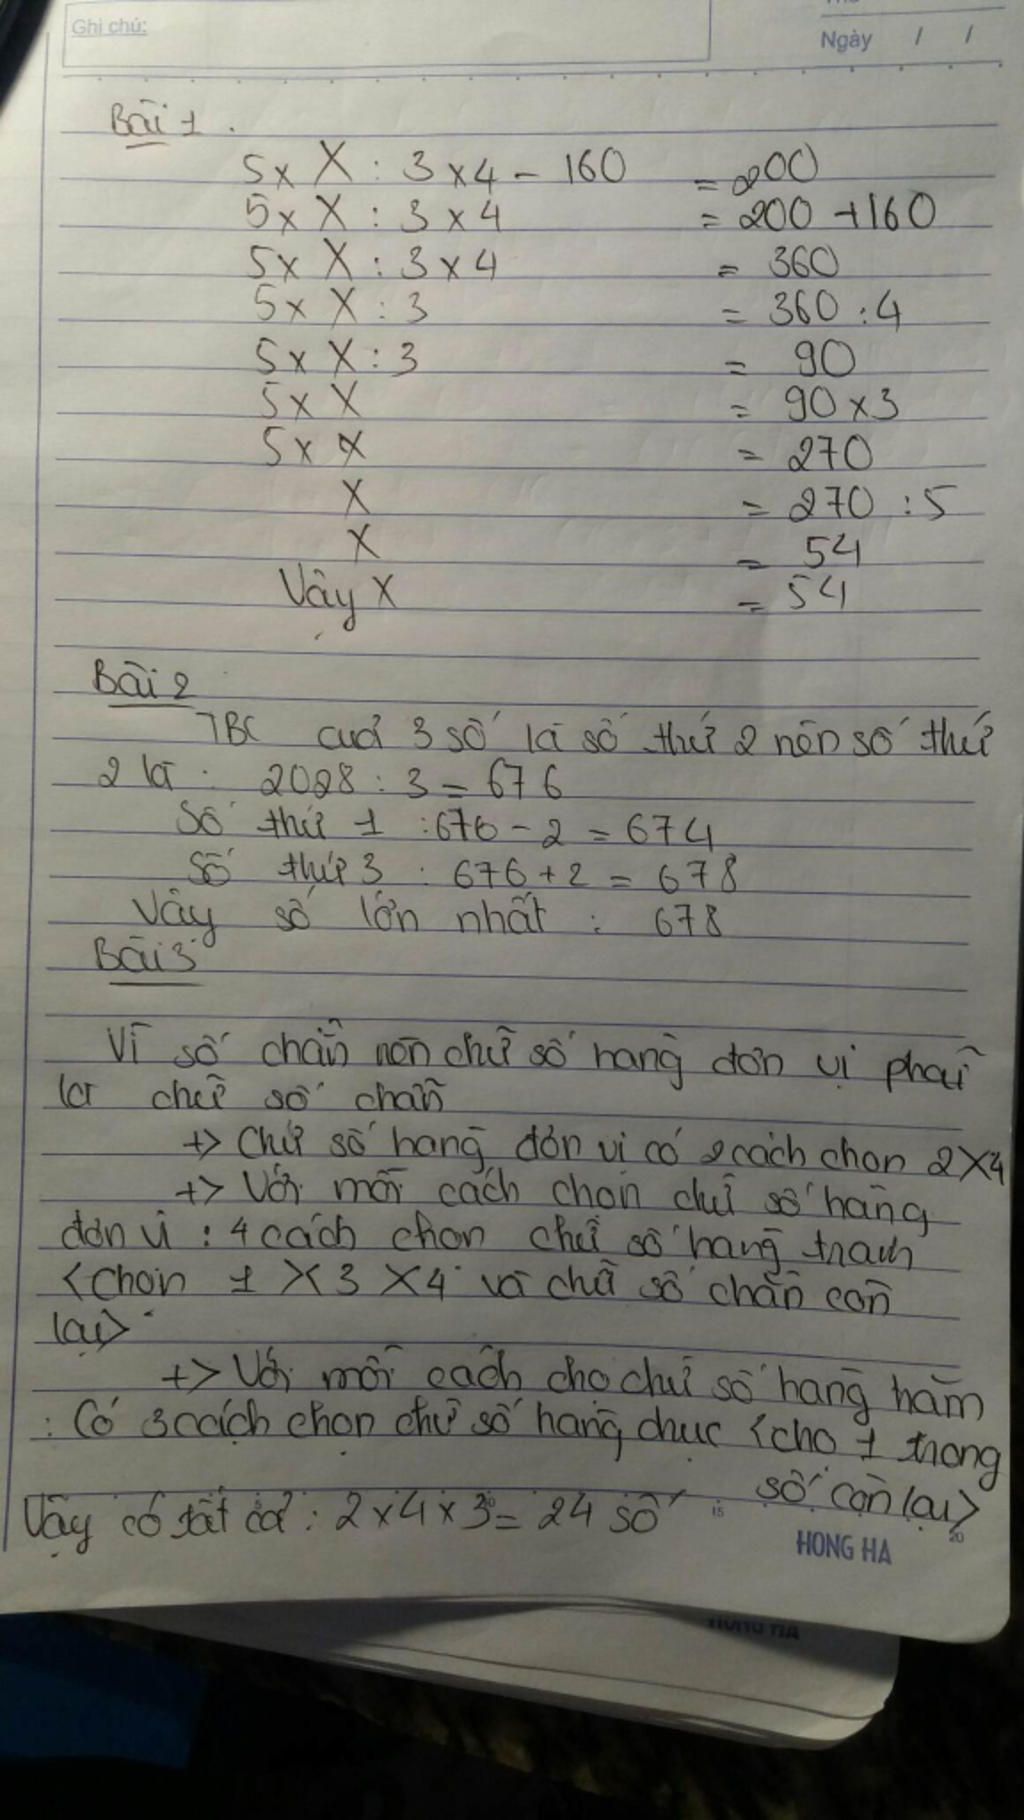 Ghi chú:
Ngày / /
Bài 1.
5 x X : 3 x 4 - 160 = 200
5 x X : 3 x 4 = 200 + 160
5 x X : 3 x 4 = 360
5 x X : 3 = 360 : 4
5 x X : 3 = 90
5 x X = 90 x 3
5 x X = 270
X = 270 : 5
X = 54
Vậy X = 54
Bài 2
TBC của 3 số là số thứ 2 nên số thứ
2 là : 2028 : 3 = 676
Số thứ 1 : 676 - 2 = 674
Số thứ 3 : 676 + 2 = 678
Vậy số lớn nhất : 678
Bài 3
Vì số chẵn nên chữ số hàng đơn vị phải
là chữ số chẵn
+> Chữ số hàng đơn vị có 2 cách chọn 2 X 4
+> Với mỗi cách chọn chữ số hàng
đơn vị : 4 cách chọn chữ số hàng tram
<chọn 1 X 3 X 4 và chữ số chẵn còn
lại>
+> Với mỗi cách cho chữ số hàng hăm
: Có 3 cách chọn chữ số hàng chục <cho 1 trong
số còn lại>
Vậy có tất cả : 2 x 4 x 3 = 24 số
15
20
HONG HA
HONG HA